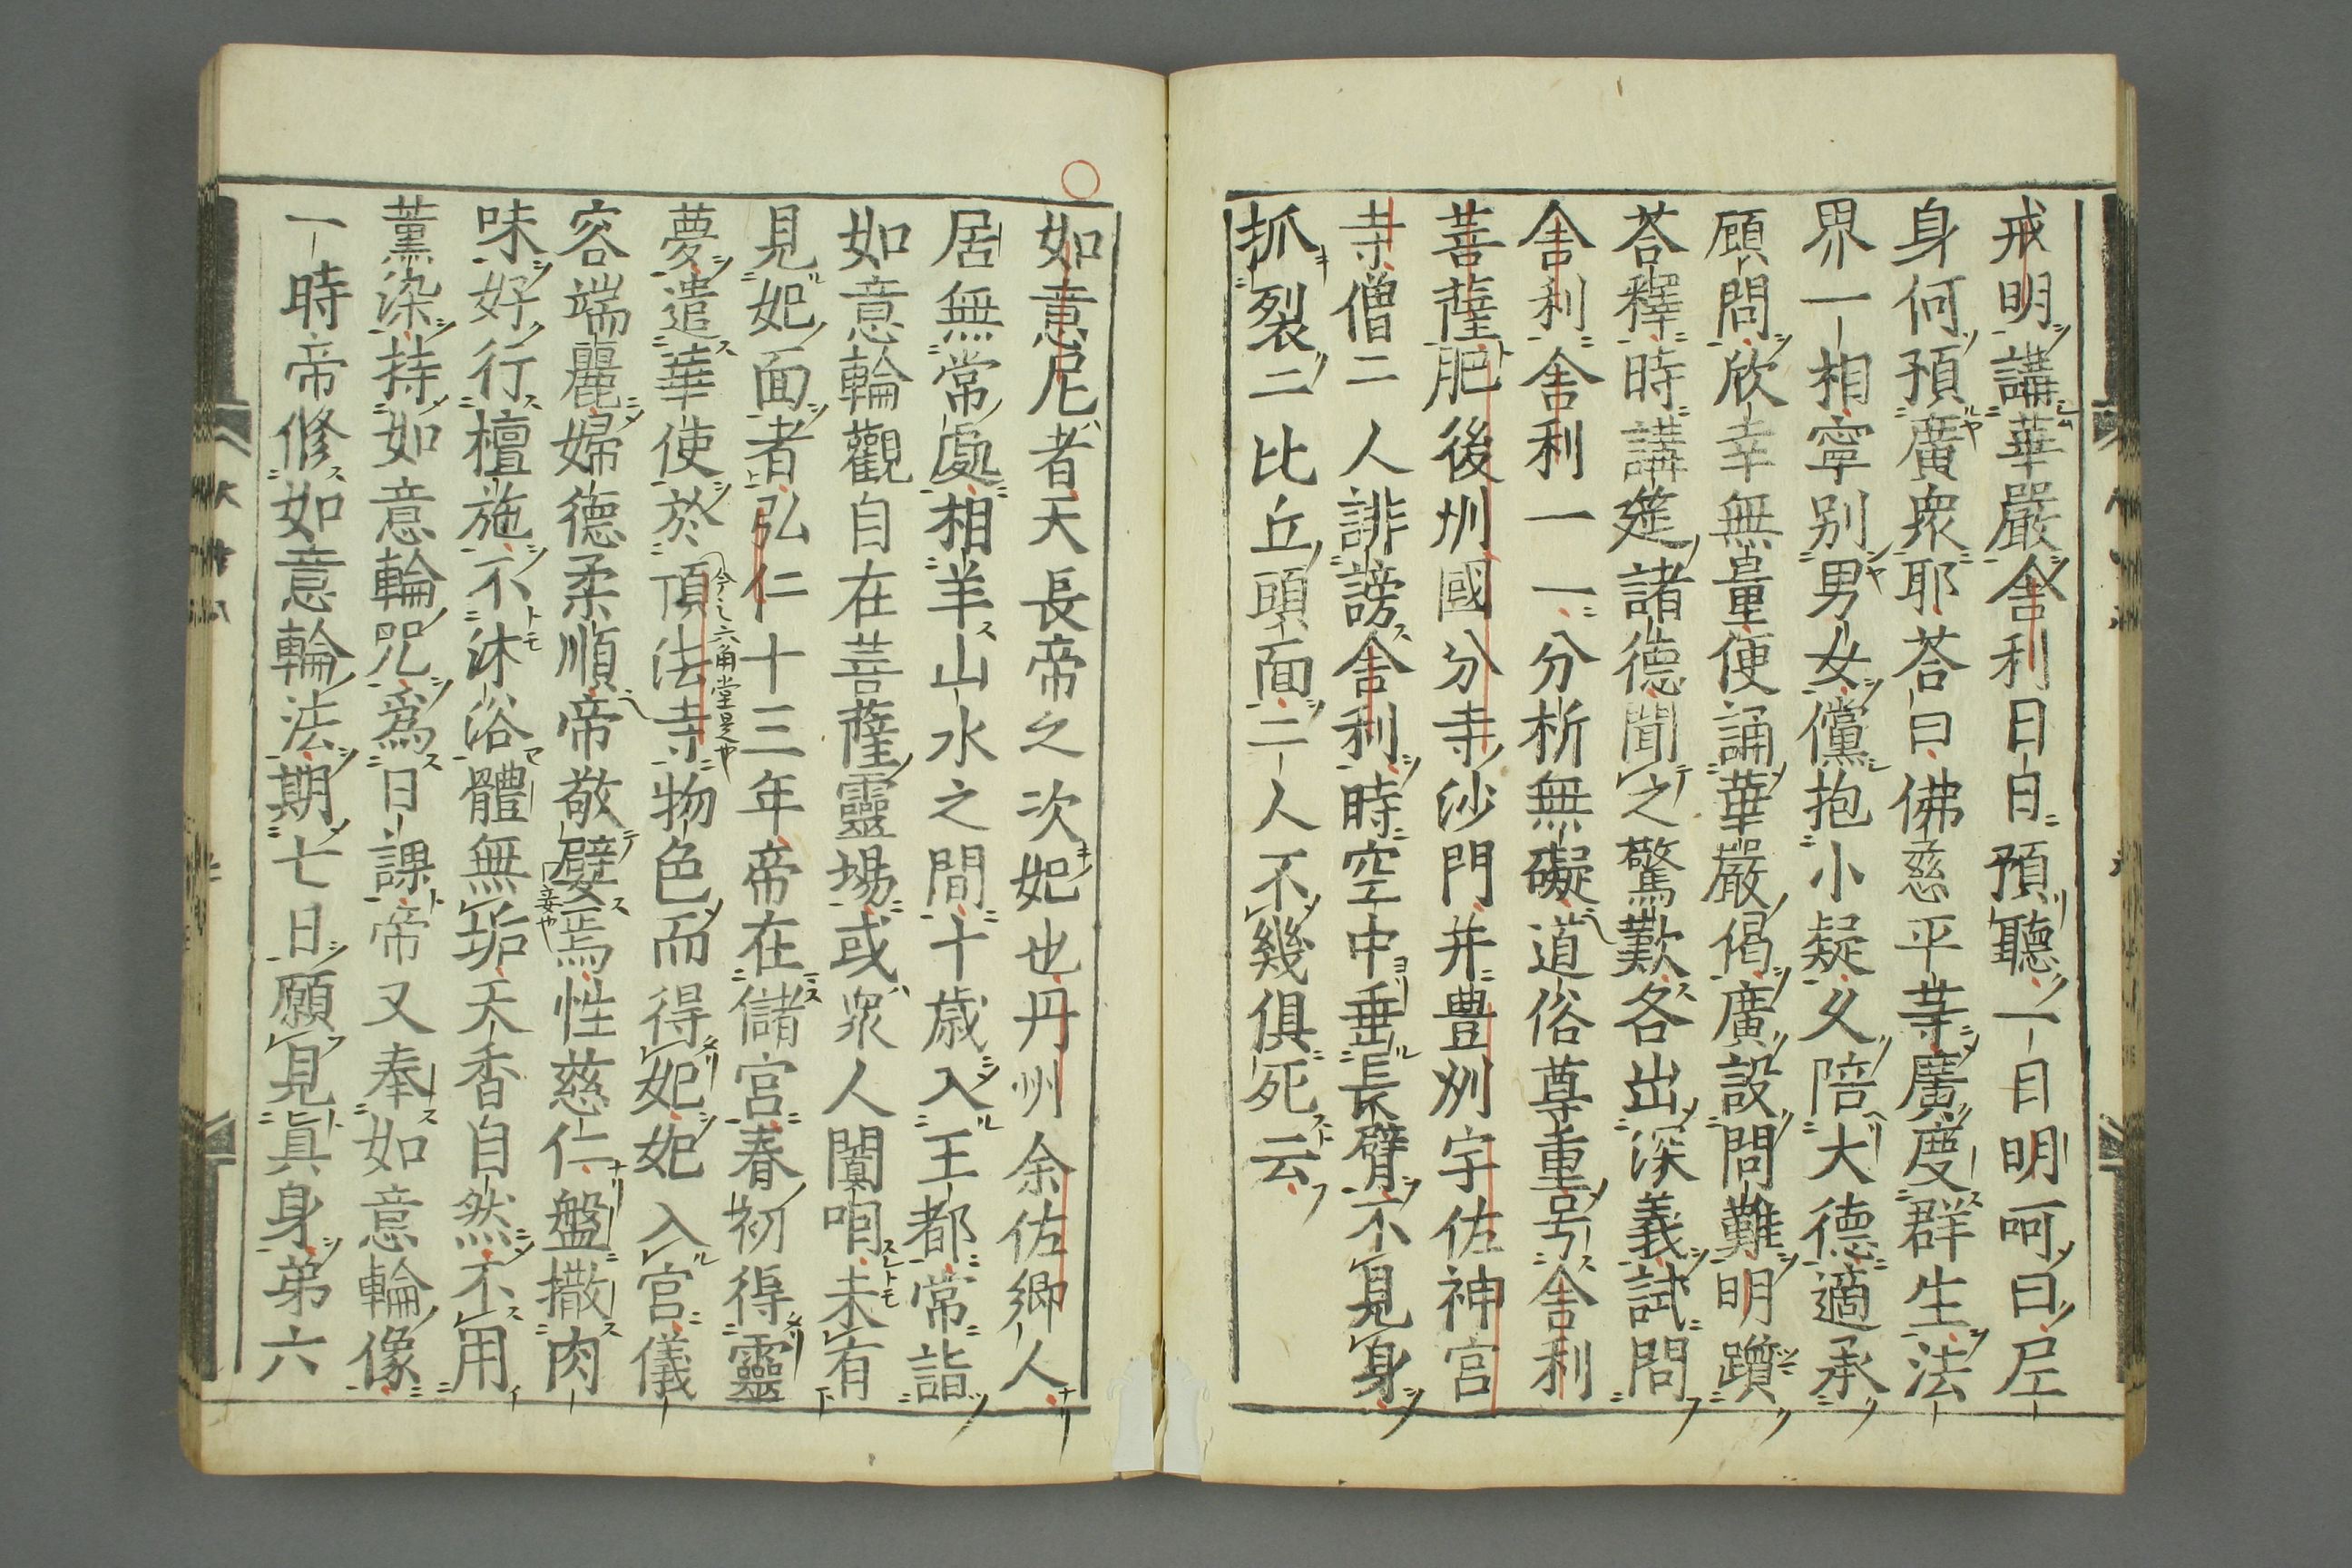 戒明講華嚴舍利日日預聽一日明呵曰尼
身何預廣衆耶荅曰佛慈平等廣度群生法
界一相寧別男女儻抱小疑久陪大德適承
顧問欣幸無量便誦華嚴偈廣設問難明躓
荅釋時講筵諸德聞之驚歎各出深義試問
舍利舍利一一分析無礙道俗尊重号舍利
菩薩肥後州國分寺沙門并豊州宇佐神宮
寺僧二人誹謗舍利時空中垂長臂不見身
抓裂二比丘頭面二人不幾俱死云
如意尼者天長帝之次妃也丹州余佐鄉人
居無常處相羊山水之間十歲入王都常詣
如意輪觀自在菩薩靈場或衆人闐咽未有
見妃面者弘仁十三年帝在儲宮春初得靈
夢遣華使於頂法寺物色而得妃妃入宮儀
今之六角堂是也
容端麗婦德柔順帝敬嬖焉性慈仁盤撒肉
妾也
味好行檀施不沐浴體無垢天香自然不用
薰染持如意輪咒爲日課帝又奉如意輪像
一時帝修如意輪法期七日願見眞身第六